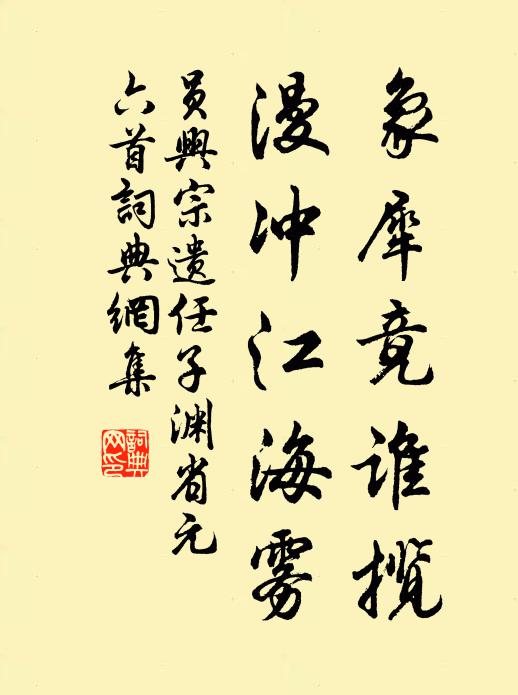 象犀竟谁揽
漫冲江海雾
员興宗遗任子渊省元
六首詞典網集
詞典网印